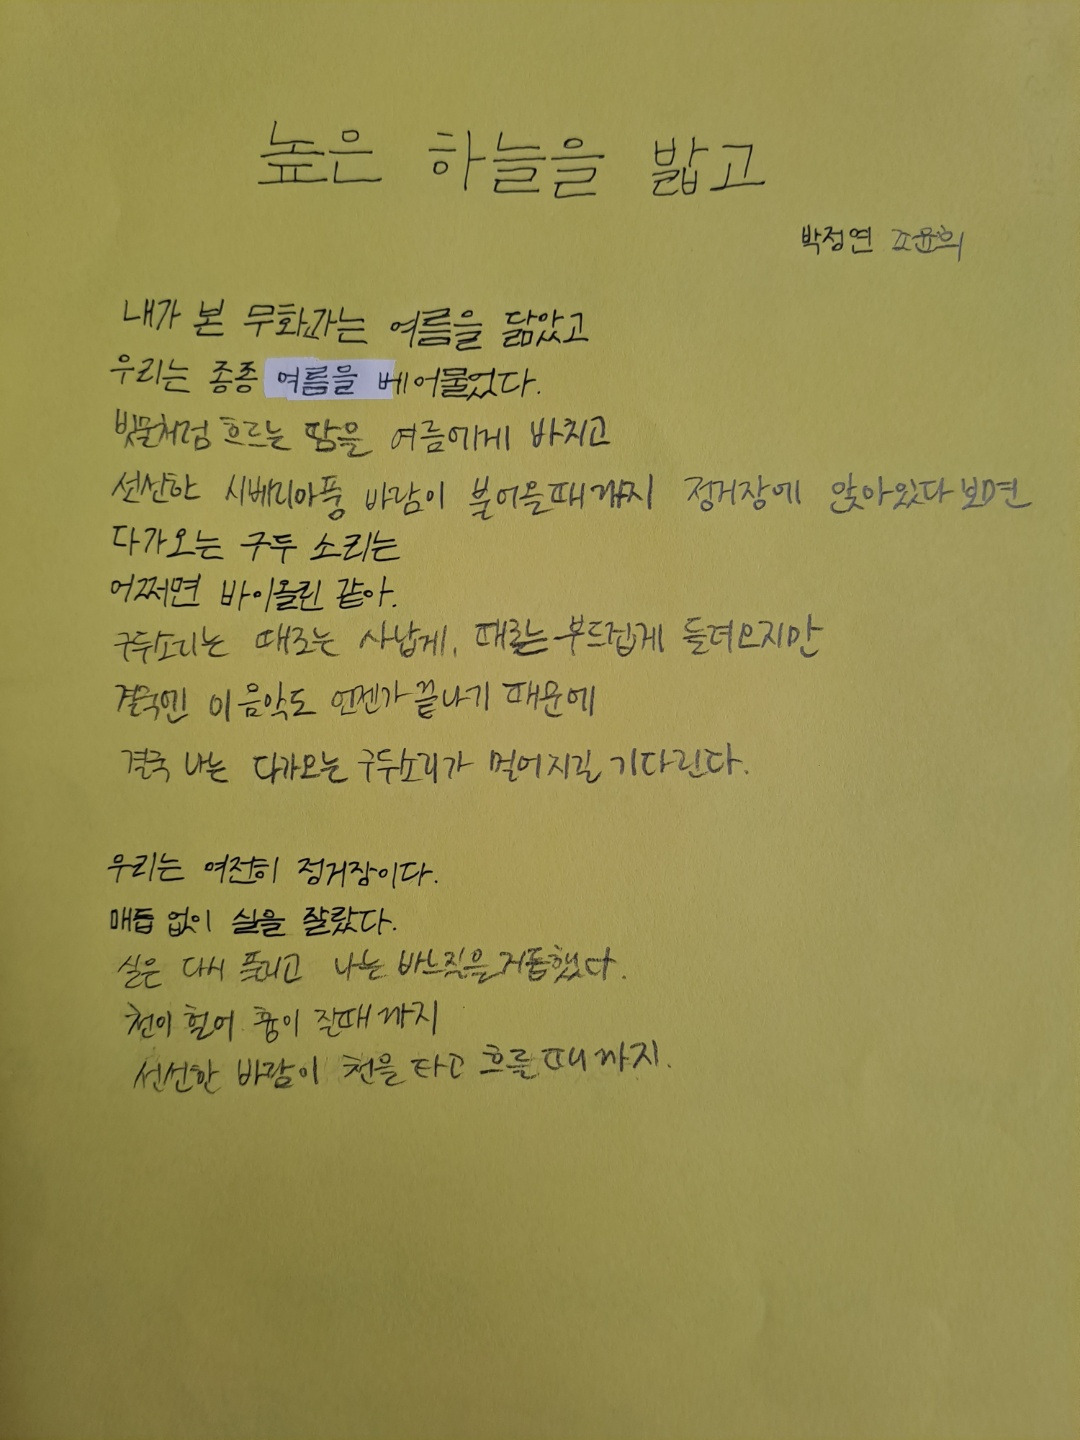 높은 하늘을 밟고
박정연 조윤희
내가 본 무화과는 여름을 닮았고
우리는 종종 여름을 베어물었다.
빗물처럼 흐르는 땀을 여름에게 바치고
선선한 시베리아풍 바람이 불어올때까지 정거장에 앉아있다보면
다가오는 구두 소리는
어쩌면 바이올린 같아.
구두소리는 때로는 사납게, 때로는 부드럽게 들려오지만
결국엔 이 음악도 언젠가 끝나기 때문에
결국 나는 다가오는 구두소리가 멀어지길 기다린다.
우리는 여전히 정거장이다.
매듭 없이 실을 잘랐다.
실은 다시 풀리고 나는 바느질을 거듭했다.
천이 헐어 흉이 질때까지
선선한 바람이 천을 타고 흐를때까지.